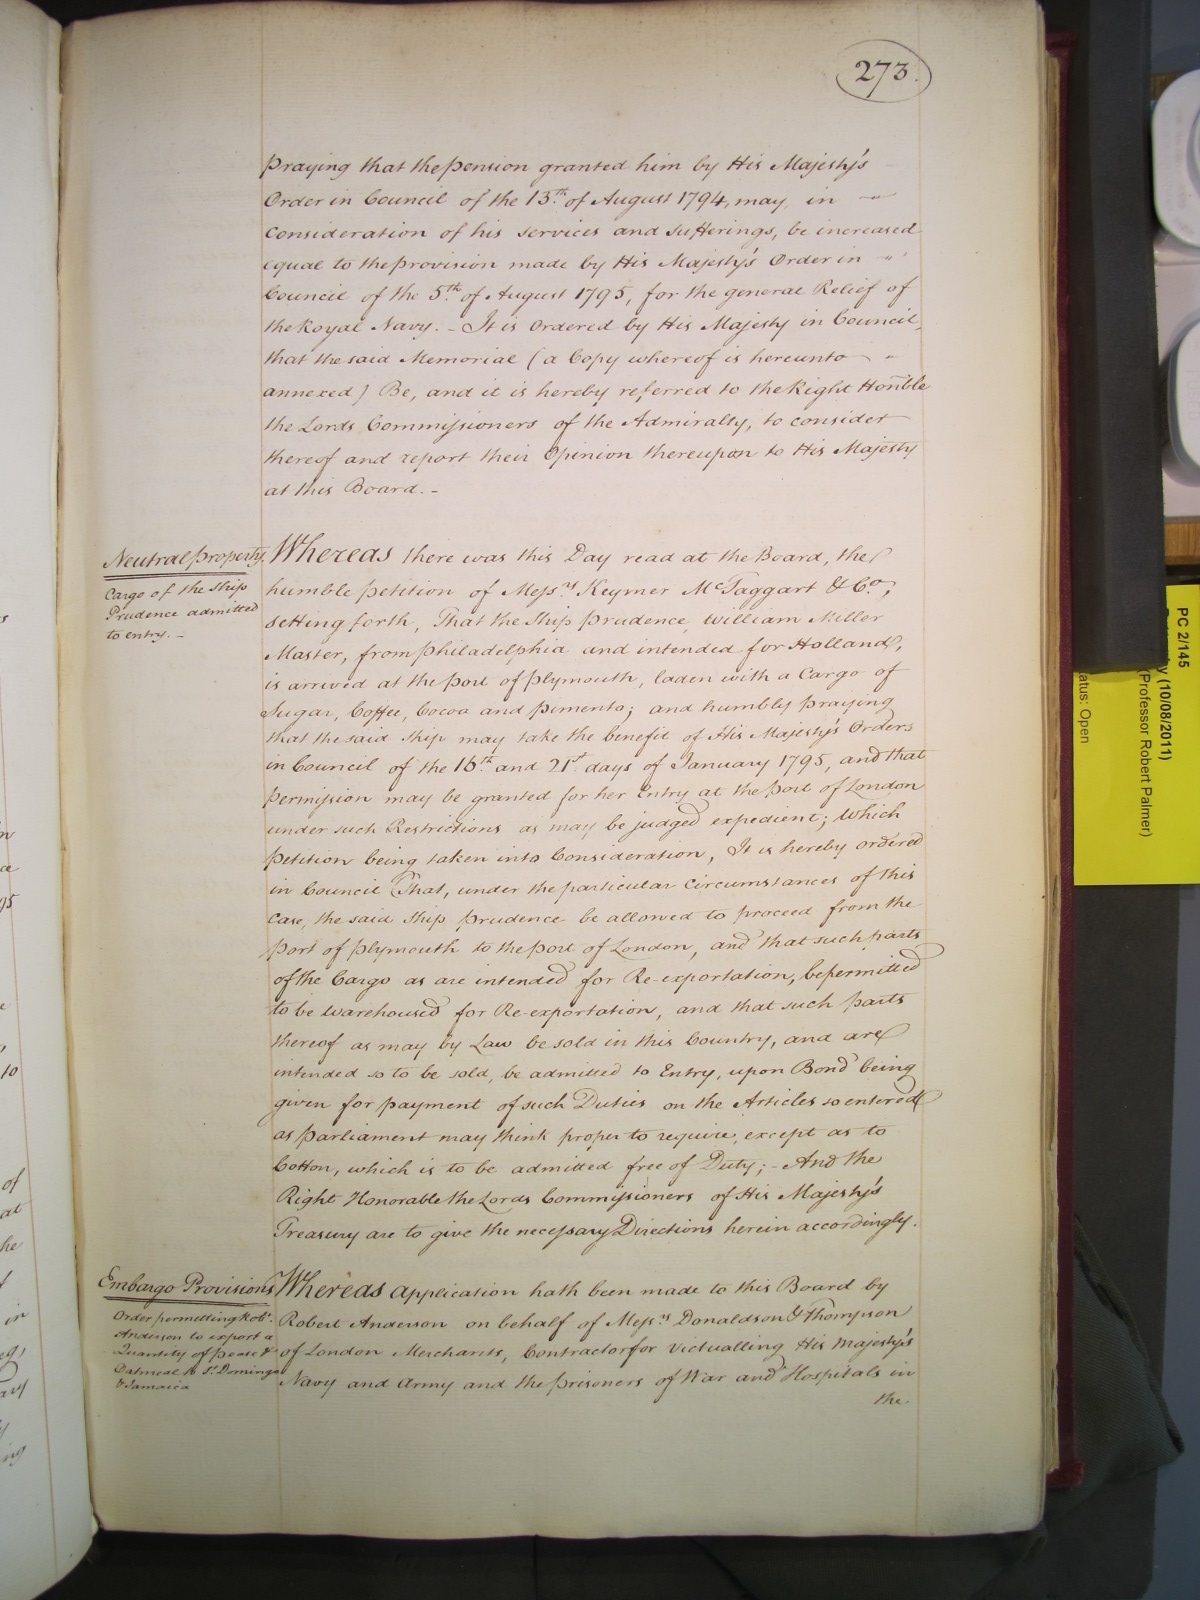 273.
praying that the pension granted him by His Majesty's
Order in Council of the 13th of August 1794, may, in
consideration of his services and sufferings, be increased
equal to the provision made by His Majesty's Order in
Council of the 5th of August 1795, for the general Relief of
the Royal Navy. - It is Ordered by His Majesty in Council,
that the said Memorial (a Copy whereof is hereunto
annexed) Be, and it is hereby referred to the Right Honble
the Lords Commissioners of the Admiralty, to consider
thereof and report their Opinion thereupon to His Majesty
at this Board. -
Neutral property.
Cargo of the Ship
Prudence admitted
to entry. -
Whereas there was this Day read at the Board, the
humble petition of Messrs Keymer McTaggart & Co,
setting forth, That the Ship Prudence, William Miller
Master, from Philadelphia and intended for Holland,
is arrived at the port of Plymouth, laden with a Cargo of
Sugar, Coffee, Cocoa and Pimento; and humbly praying
that the said Ship may take the benefit of His Majesty's Orders
in Council of the 16th and 21st days of January 1795, and that
permission may be granted for her Entry at the port of London
under such Restrictions as may be judged expedient; Which
petition being taken into Consideration, It is hereby ordered
in Council That, under the particular Circumstances of this
Case, the said Ship Prudence be allowed to proceed from the
port of Plymouth to the port of London, and that such parts
of the Cargo as are intended for Re-exportation, be permitted
to be warehoused for Re-exportation, and that such parts
thereof as may by Law be sold in this Country, and are
intended so to be sold, be admitted to Entry, upon Bond being
given for payment of such Duties on the Articles so entered
as Parliament may think proper to require, except as to
Cotton, which is to be admitted free of Duty; - And the
Right Honorable the Lords Commissioners of His Majesty's
Treasury are to give the necessary Directions herein accordingly.
Embargo Provisions
Order permitting Robt.
Anderson to export a
Quantity of pease &
Oatmeal to St. Domingo
& Jamaica
Whereas application hath been made to this Board by
Robert Anderson on behalf of Messrs Donaldson & Thompson
of London Merchants, Contractor for Victualling His Majesty's
Navy and Army and the prisoners of War and Hospitals in
the
PC 2/145
(10/08/2011)
(Professor Robert Palmer)
atus: Open